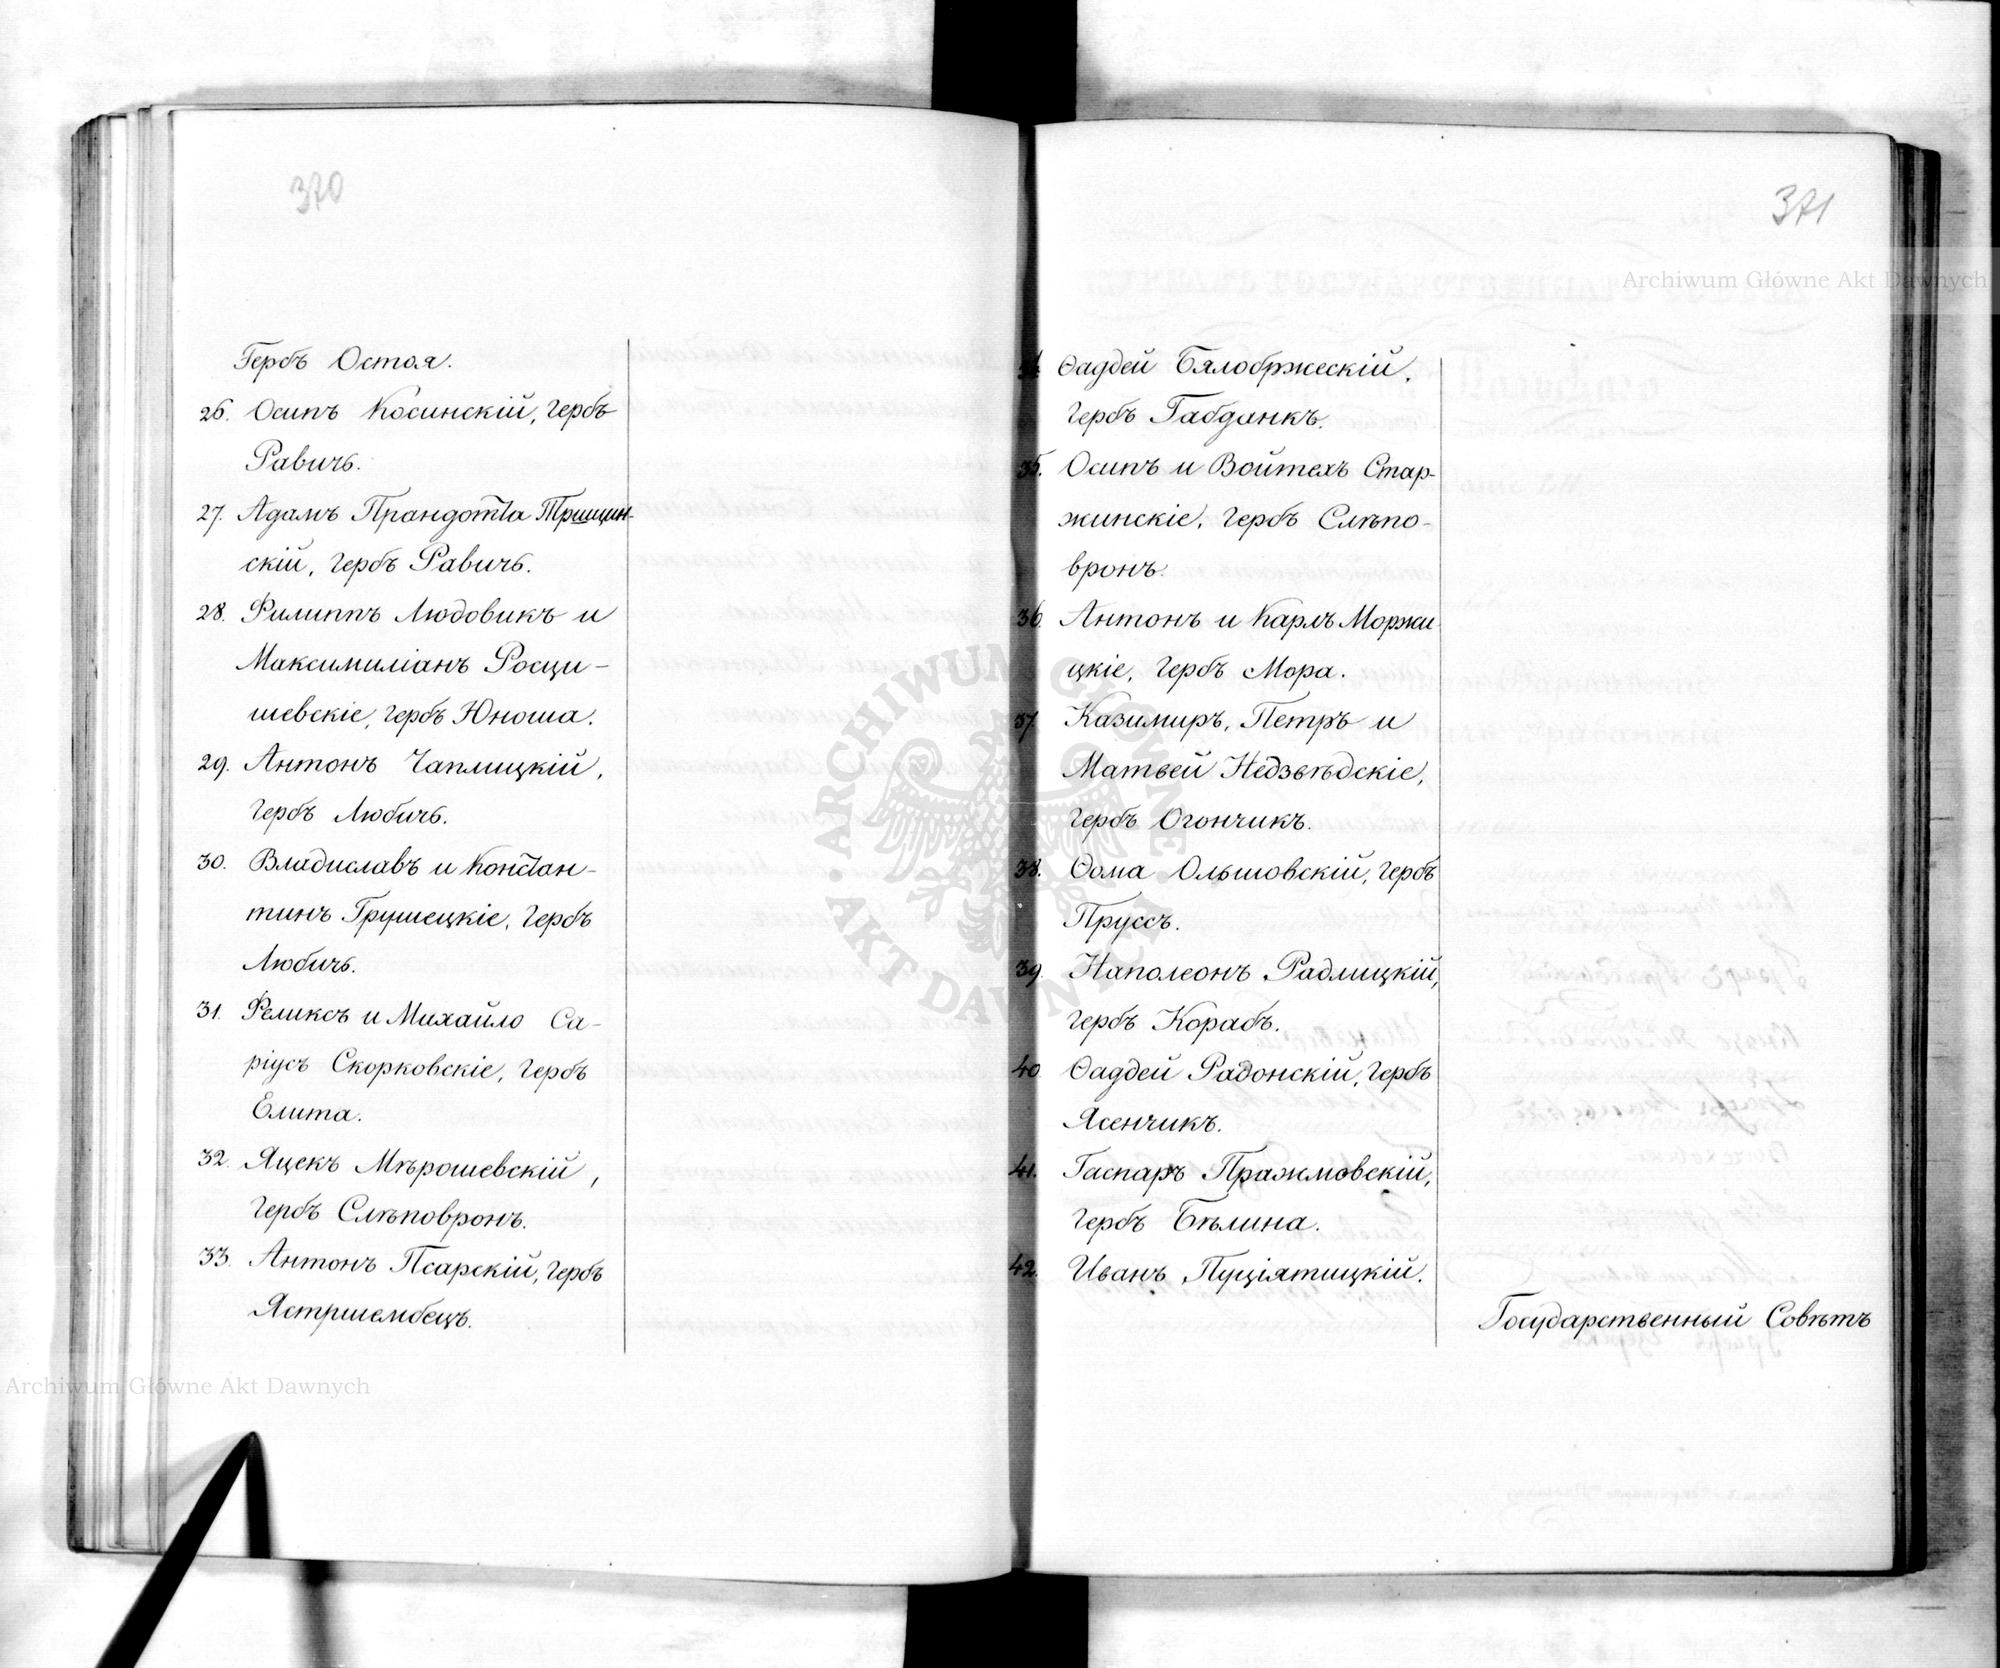 370
Гербъ Остоя.
26. Осипъ Косинскій, гербъ
Равичъ.
27. Адамъ Прандота Тршцин-
скій, гербъ Равичъ.
28. Филиппъ Людовикъ и
Максимиліанъ Росци-
шевскіе, гербъ Юноша.
29. Антонъ Чаплицкій,
гербъ Любичъ.
30. Владиславъ и Констан-
тинъ Грушецкіе, гербъ
Любичъ.
31. Феликсъ и Михайло Са-
ріусъ Скорковскіе, гербъ
Елита.
32. Яцекъ Мѣрошевскій,
гербъ Слѣповронъ.
33. Антонъ Псарскій, гербъ
Ястршембецъ.
371
34. Ѳаддей Бялобржескій,
гербъ Габданкъ.
35. Осипъ и Войтехъ Стар-
жинскіе, гербъ Слѣпо-
вронъ.
36. Антонъ и Карлъ Моржи
цкіе, гербъ Мора.
37. Казимиръ, Петръ и
Матвей Недзвѣдскіе,
гербъ Огончикъ.
38. Ѳома Ольшовскій, гербъ
Пруссъ.
39. Наполеонъ Радлицкій,
гербъ Корабъ.
40. Ѳаддей Радонскій, гербъ
Ясенчикъ.
41. Гаспаръ Пражмовскій,
гербъ Бѣлина.
42. Иванъ Пуціятицкій.
Государственный Совѣтъ
Archiwum Główne Akt Dawnych
Archiwum Główne Akt Dawnych
ARCHIWUM GŁÓWNE AKT DAWNYCH